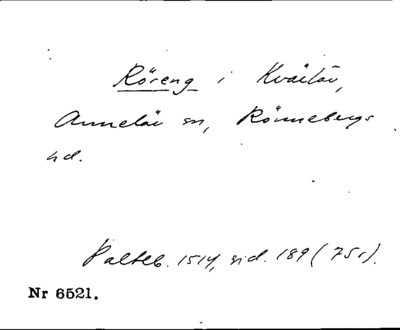 Röreng i Kvällöv,
Annelöv sn, Rönnebergs
hd.
Palteb. 1514, sid. 189 (75r).
Nr 6521.